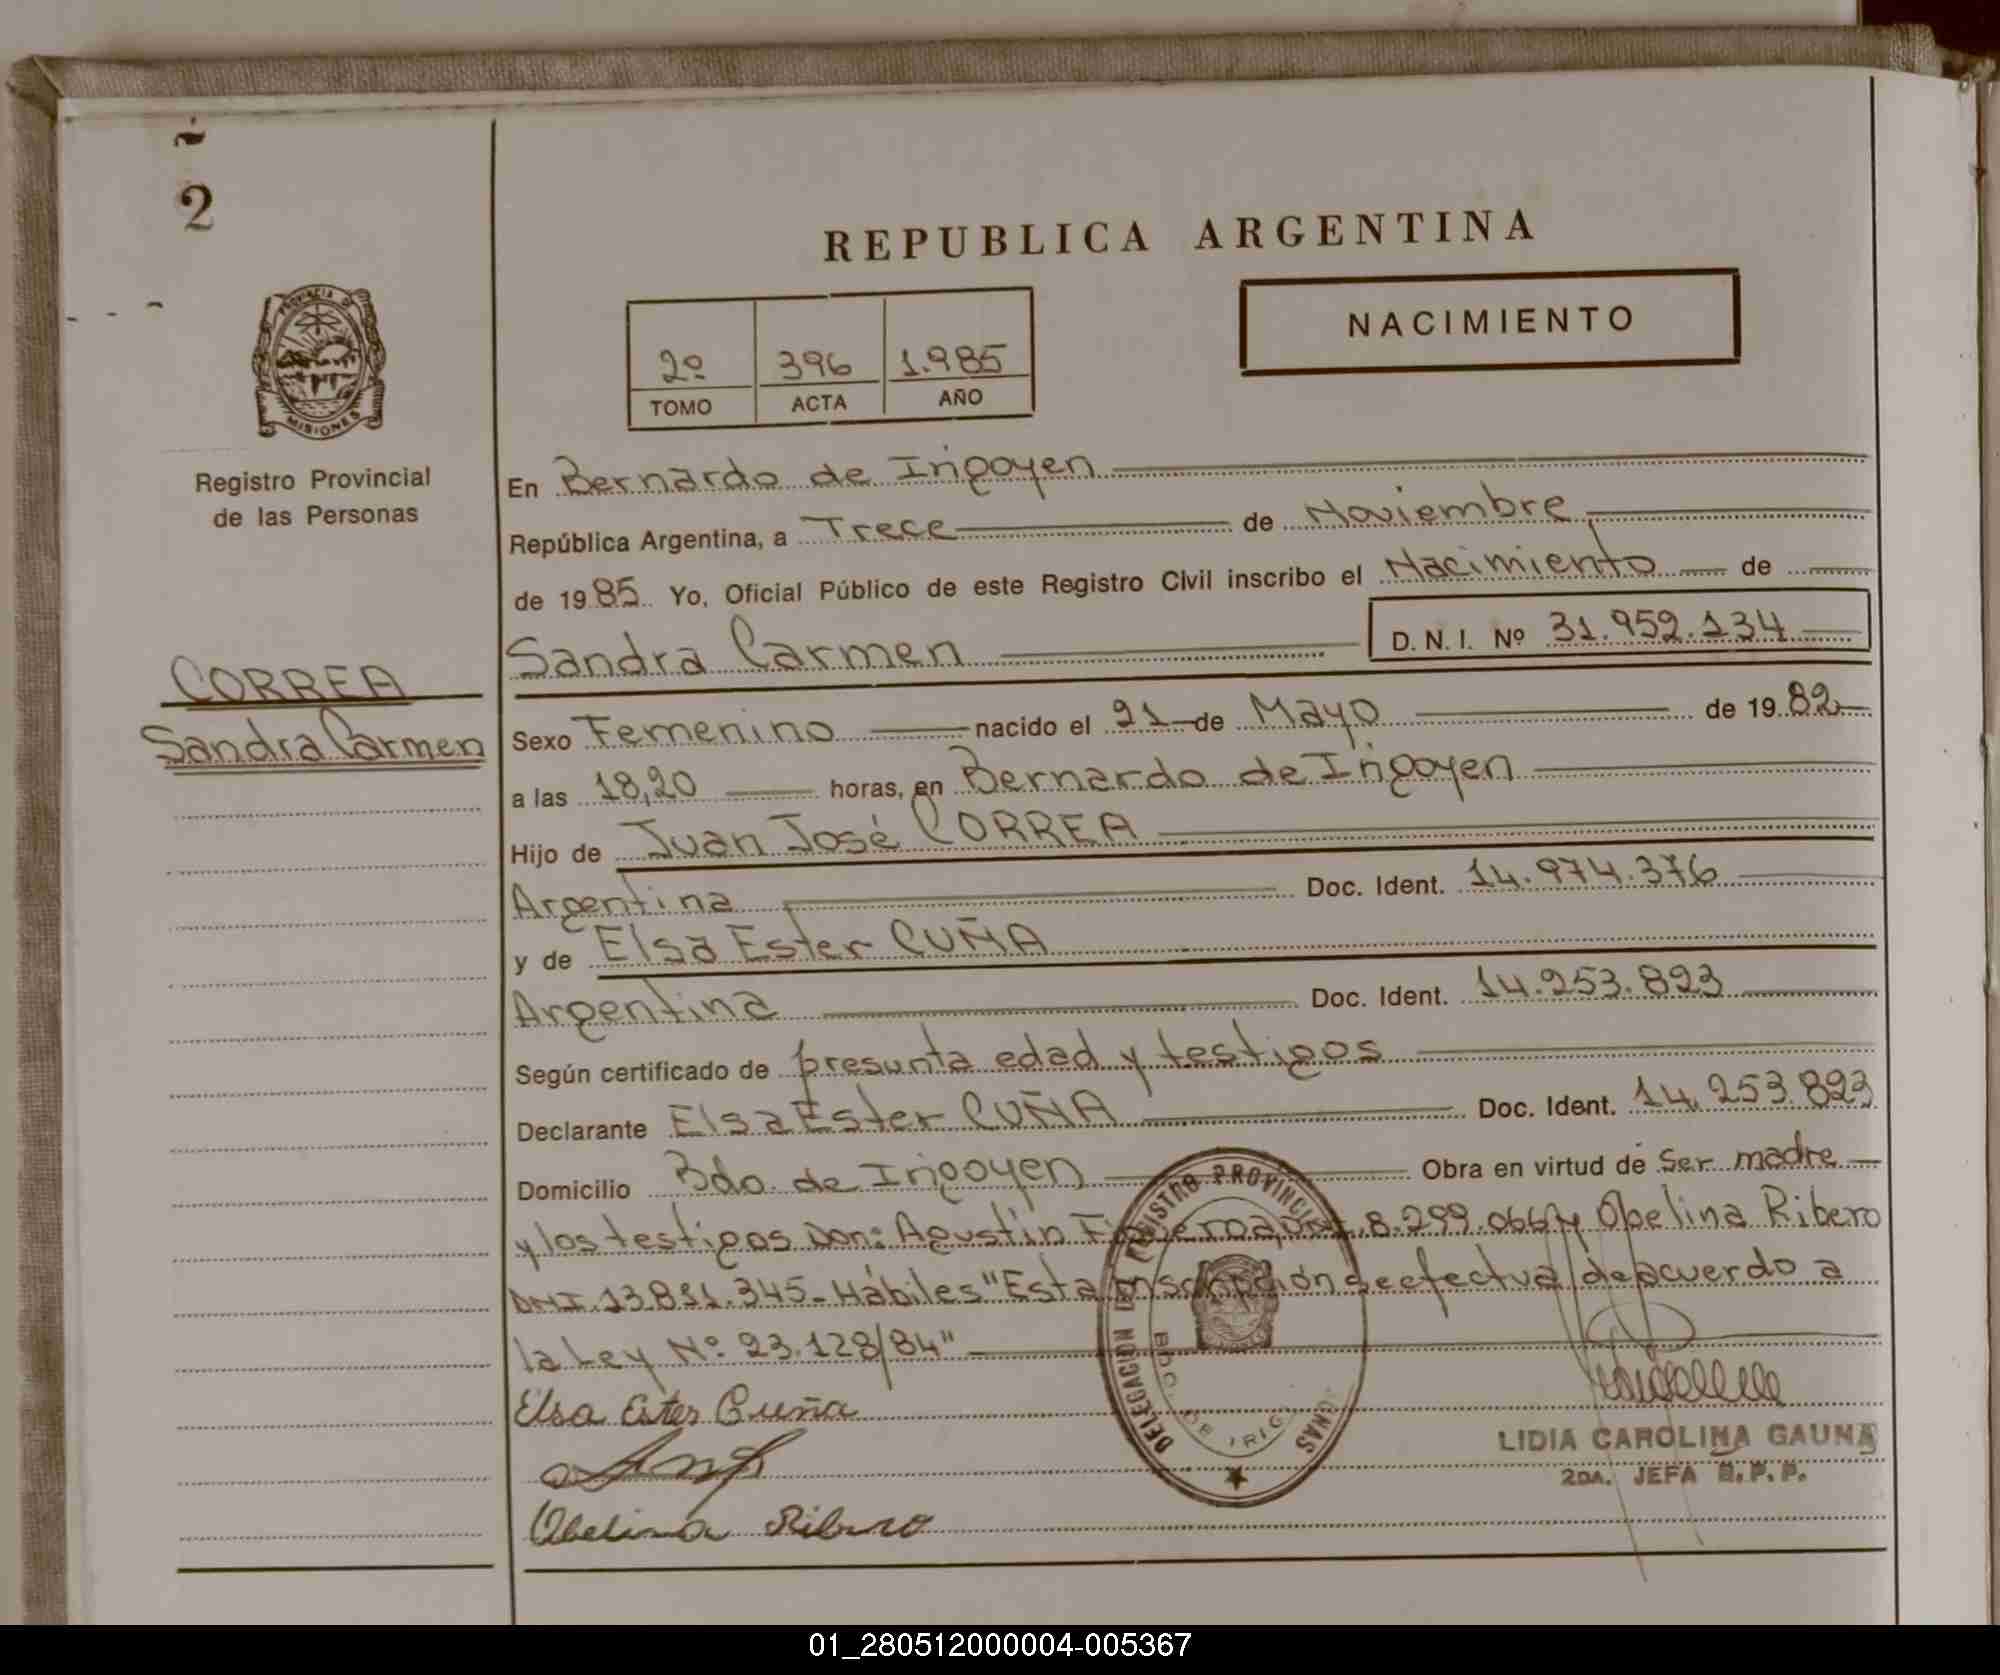 2
REPUBLICA ARGENTINA
NACIMIENTO
2º 396 1.985
TOMO ACTA AÑO
PROVINCIA DE
MISIONES
Registro Provincial
de las Personas
CORREA
Sandra Carmen
En Bernardo de Irigoyen
República Argentina, a Trece de Noviembre
de 1985 Yo, Oficial Público de este Registro Civil inscribo el Nacimiento de
Sandra Carmen D. N. I. Nº 31.952.134
Sexo Femenino nacido el 21 de Mayo de 1982
a las 18,20 horas, en Bernardo de Irigoyen
Hijo de Juan José CORREA
Argentina Doc. Ident. 14.974.376
y de Elsa Ester CUÑA
Argentina Doc. Ident. 14.253.823
Según certificado de presunta edad y testigos
Declarante Elsa Ester CUÑA Doc. Ident. 14.253.823
Domicilio Bdo. de Irigoyen Obra en virtud de ser madre
y los testigos Don: Agustín 8.299.066 y Obelina Ribero
DNI. 13.831.345- Hábiles "Esta inscripción se efectua de acuerdo a
la Ley Nº 23.128/84"
Elsa Ester Cuña
Obelina Ribero
DELEGACION REGISTRO PROVINCIAL
BDO. DE IRIG
LIDIA CAROLINA GAUNA
2DA. JEFA R.P.P.
01_280512000004-005367